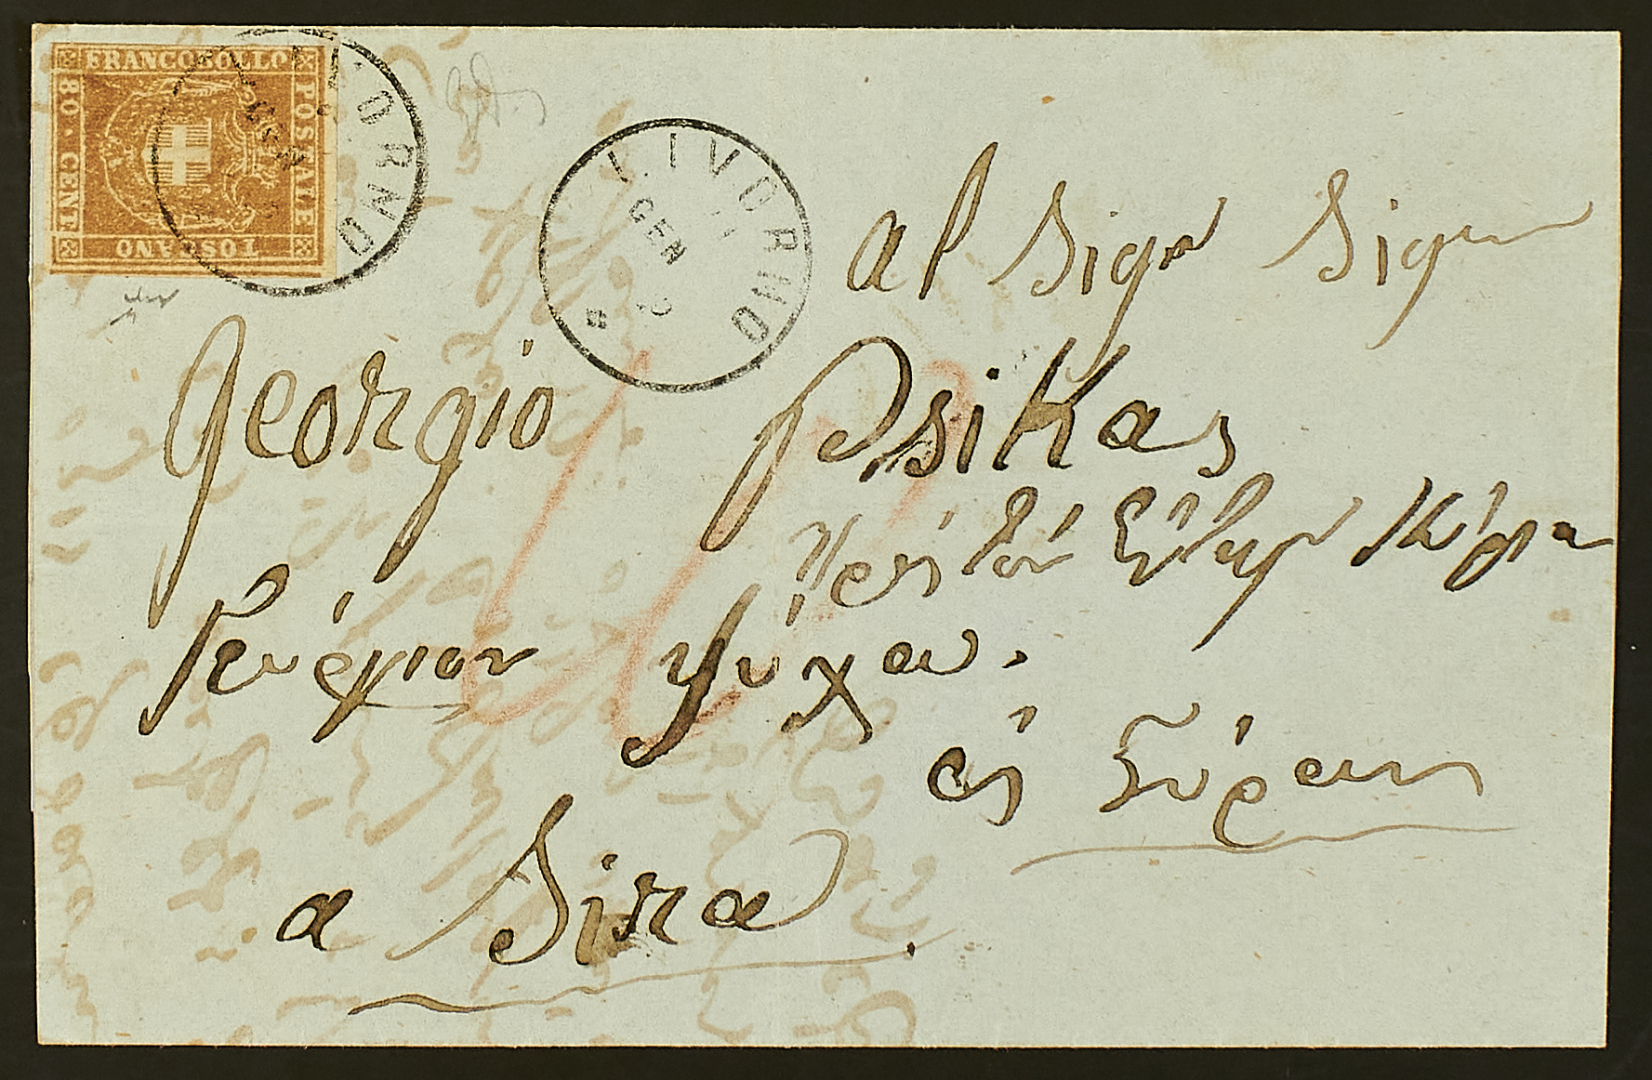 FRANCOBOLLO
POSTALE
TOSCANO
80 CENT
LIVORNO
GEN
LIVORNO
11
GEN
al Sigr Sigr
Georgio Psikas
Πρὸς τὸν Κύριον
Γεώργιον Ψύχαν.
εἰς Σύραν
a Sira